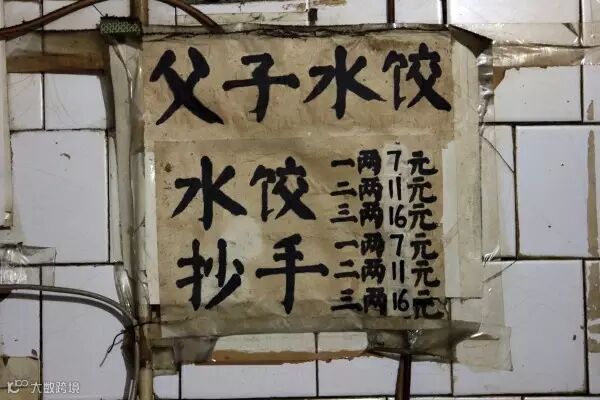 父子水饺
水饺
一两7元
二两11元
三两16元
抄手
一两7元
二两11元
三两16元
大数跨境